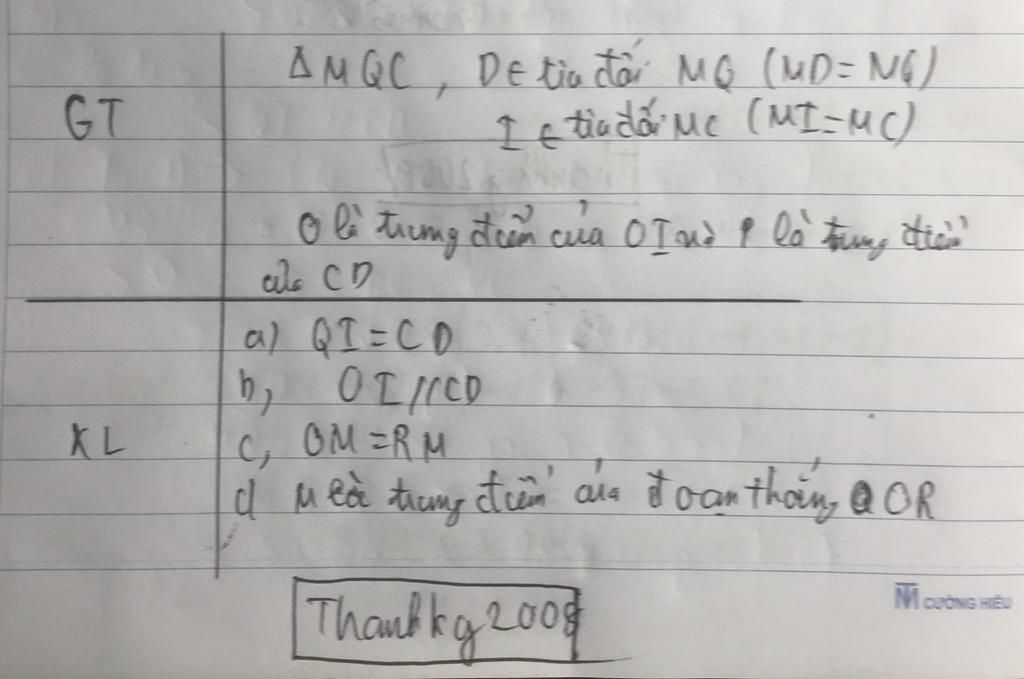 Δ MQC, D ∈ tia đối MQ (MD = MQ)
GT
I ∈ tia đối MC (MI = MC)
O là trung điểm của QI và R là trung điểm
của CD
a) QI = CD
b, QI // CD
KL
c, OM = RM
d M là trung điểm của đoạn thẳng OR
Thanhkg2008
CƯỜNG HIẾU